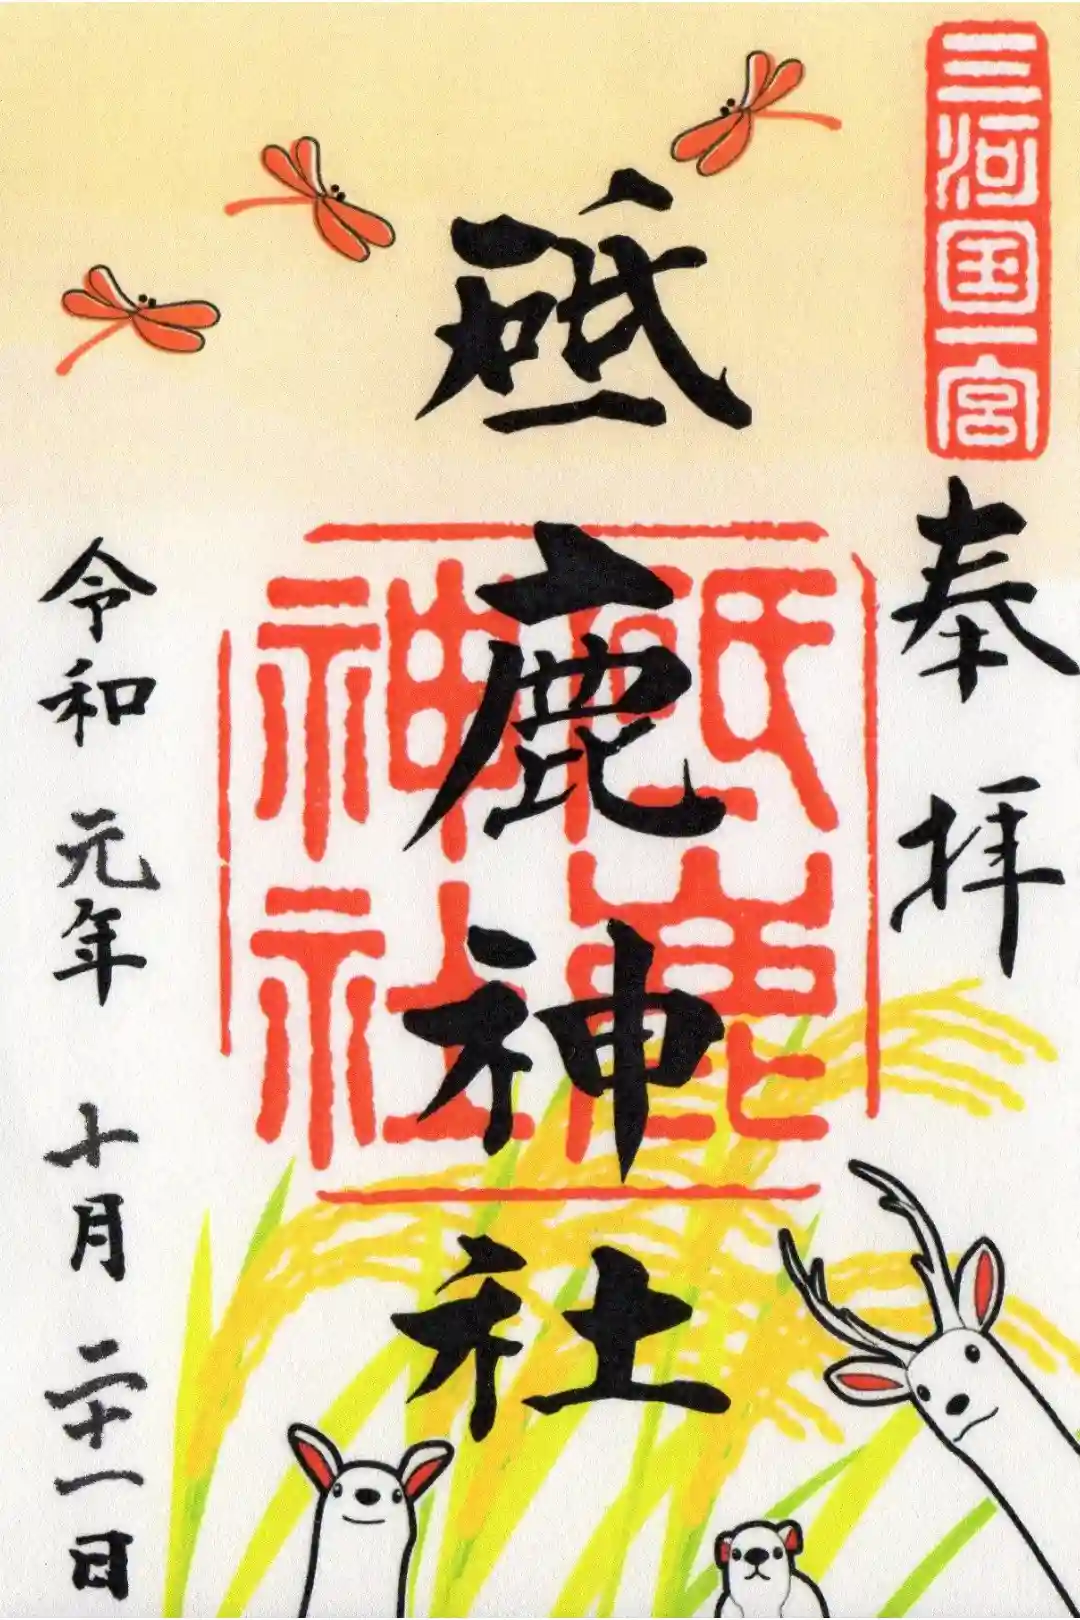 三河国一宮
奉拝
砥鹿神社
砥鹿神社
令和元年十月二十一日